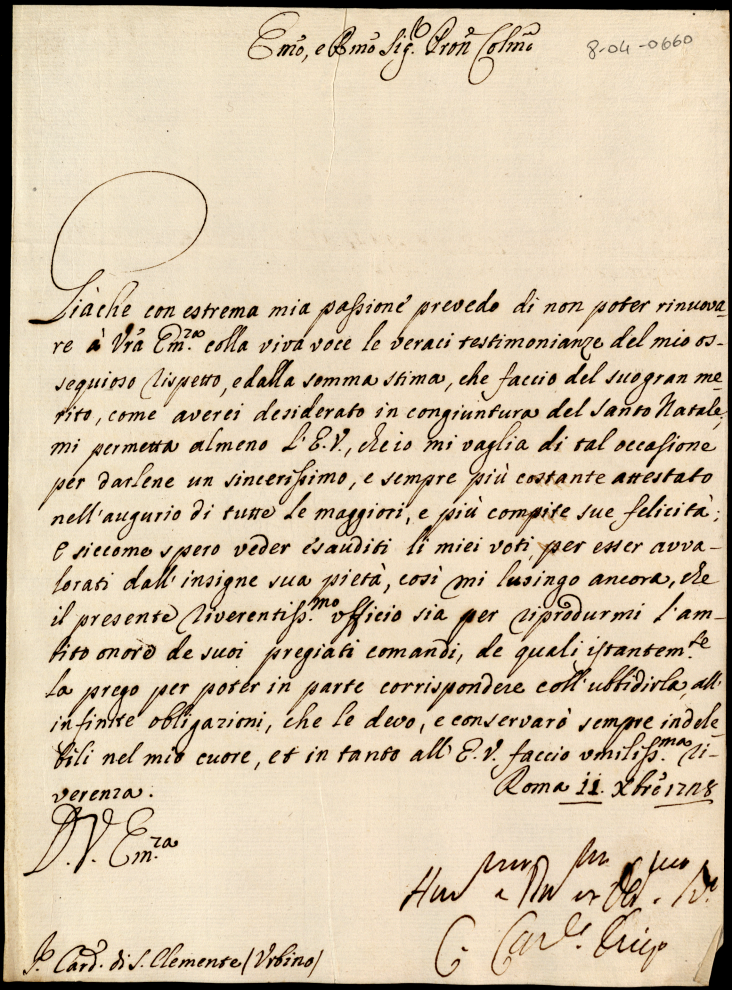 Emo, e Rmo Sig.r Pron Colmo
8-04-0660
Giàche con estrema mia passione prevedo di non poter rinuova-
re à Vrã Em.za colla viva voce le veraci testimonianze del mio os-
sequioso rispetto, e dalla somma stima, che faccio del suo gran me-
rito, come averei desiderato in congiuntura del Santo Natale,
mi permetta almeno l'E.V., che io mi vaglia di tal occasione
per darlene un sincerissimo, e sempre più costante attestato
nell'augurio di tutte le maggiori, e più compite sue felicità;
E siccome spero veder esauditi li miei voti, per esser avva-
lorati dall'insigne sua pietà, così mi lusingo ancora, che
il presente riverentiss.mo officio sia per riprodurmi l'am-
bito onore de suoi pregiati comandi, de quali istantem.te
la prego per poter in parte corrispondere coll'ubbidirla all'
infinite obligazioni, che le devo, e conservarò sempre indele-
bili nel mio cuore, et in tanto all'E.V. faccio umiliss.ma ri-
verenza. Roma 11. Xbre
D.V. Em.za
C. Card.
Sr. Card. di S. Clemente (Urbino)